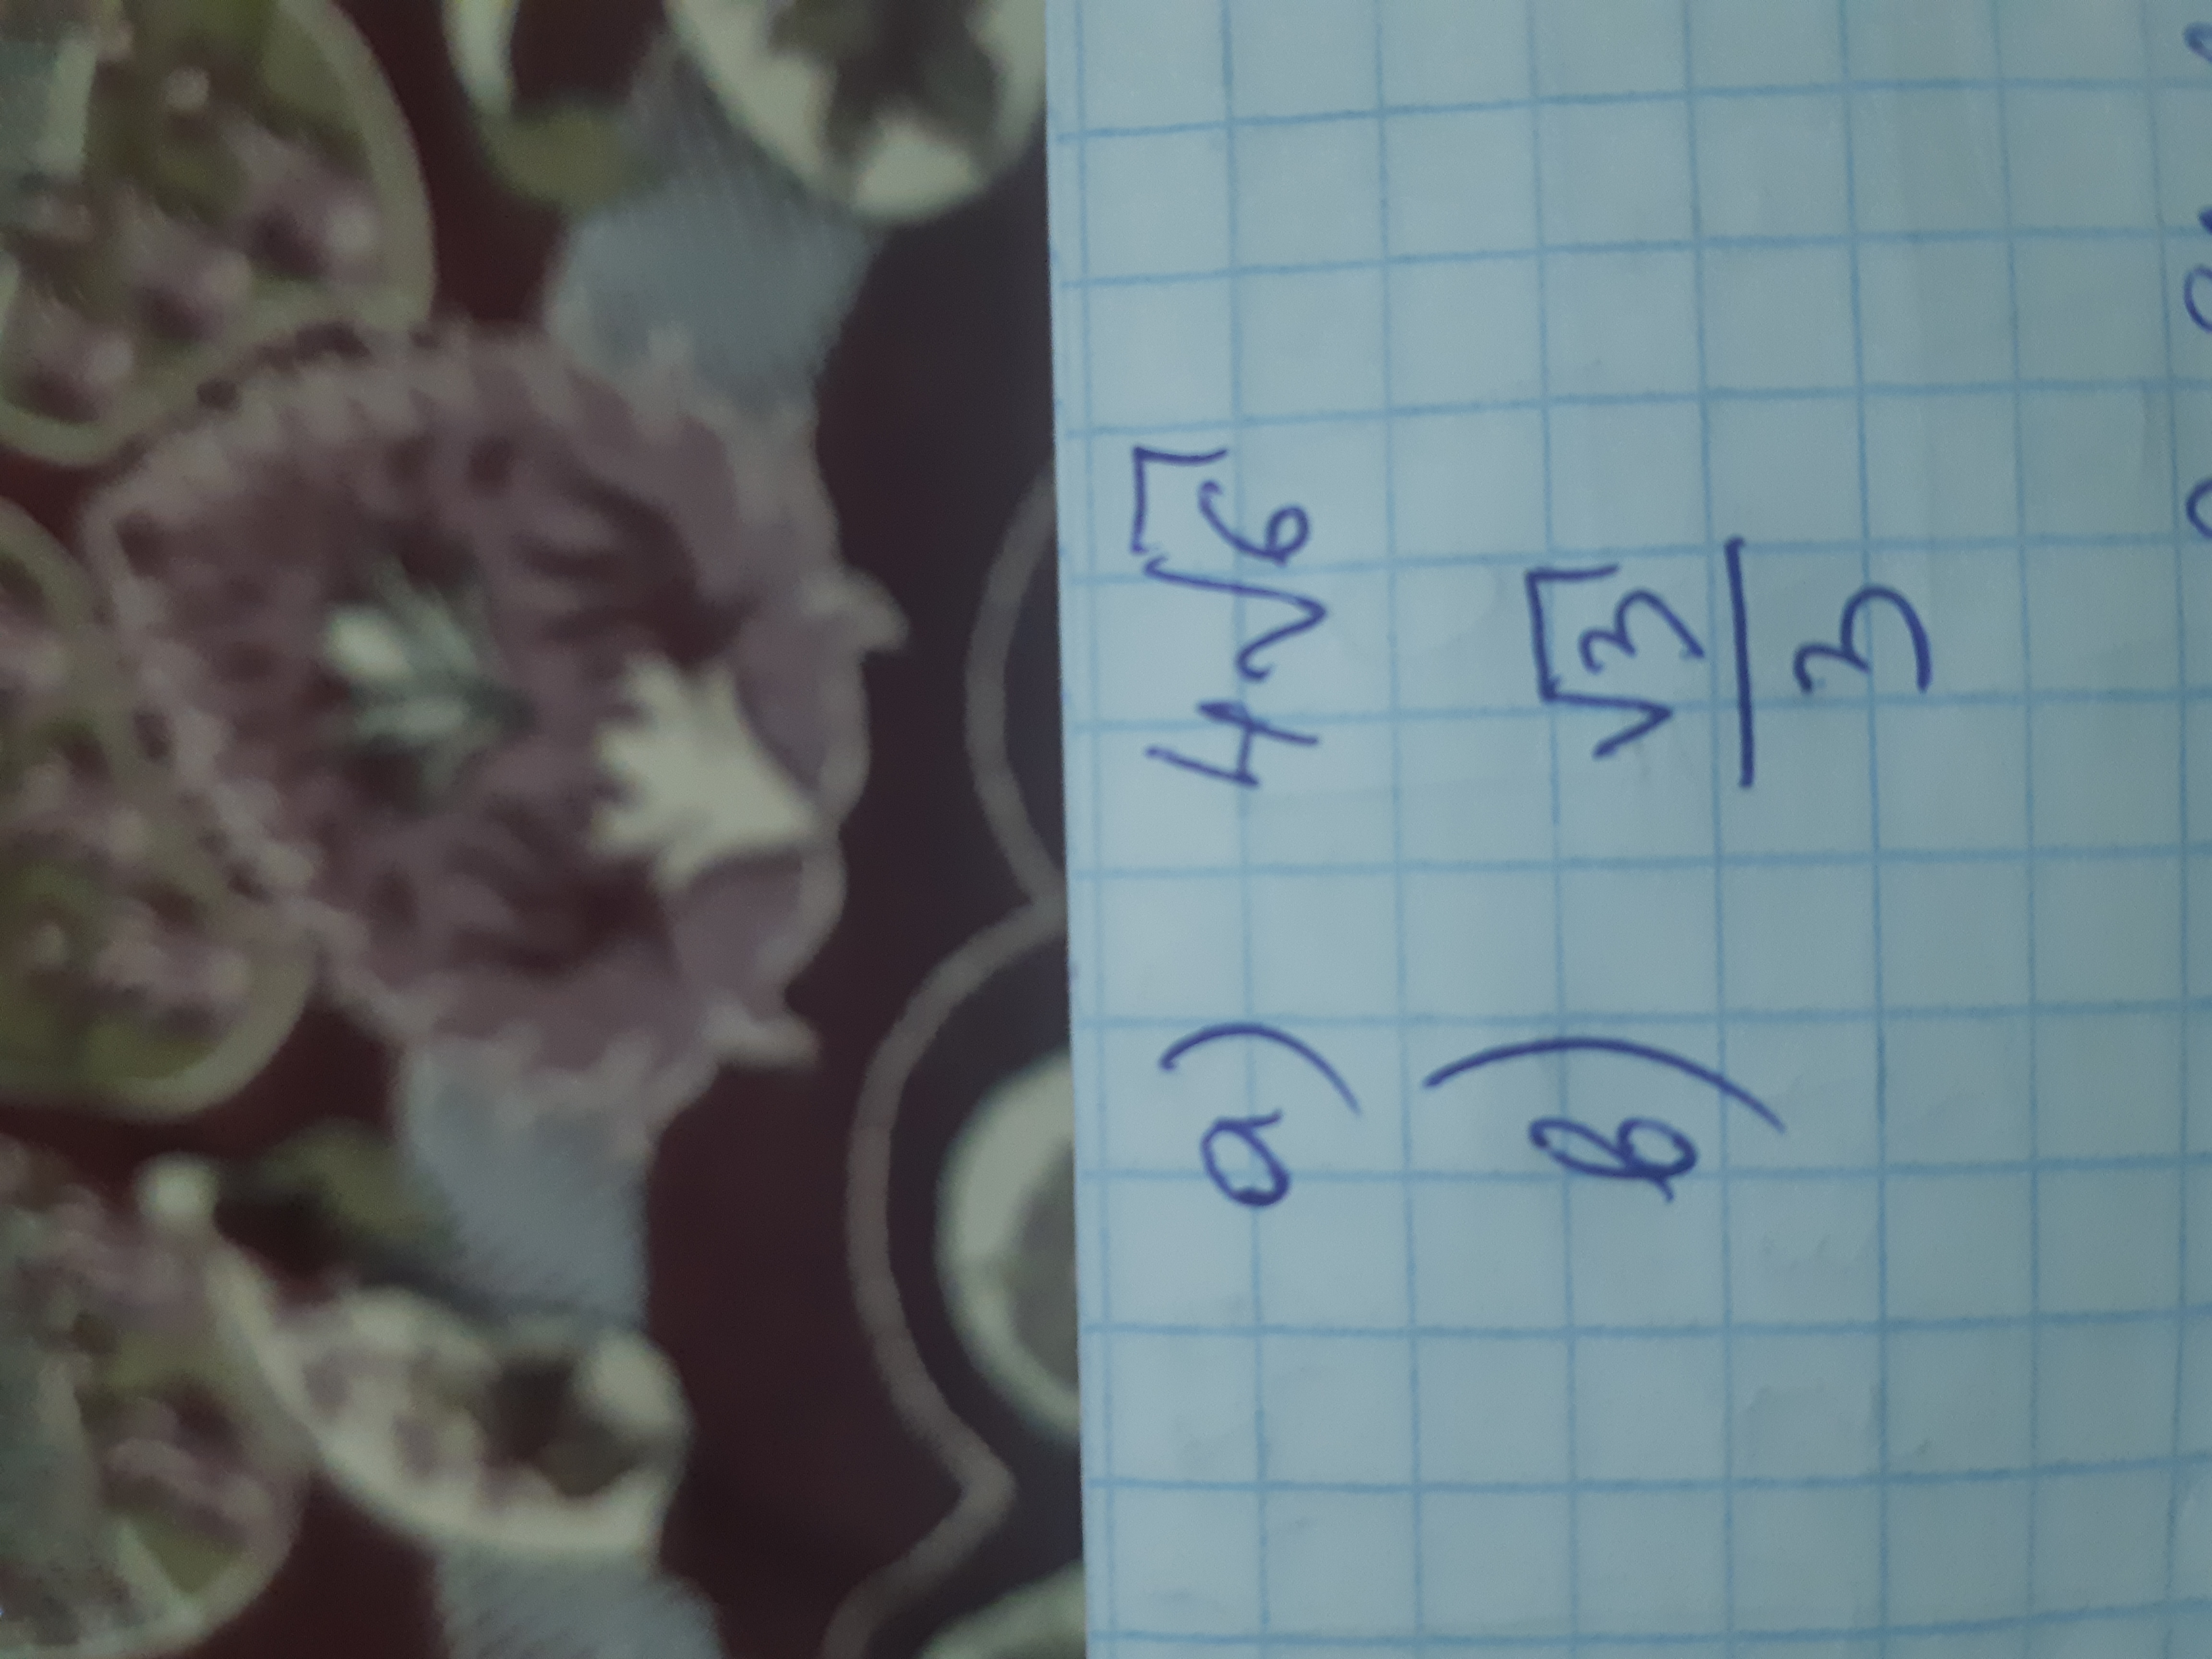 а) 4√6
в) √3/3